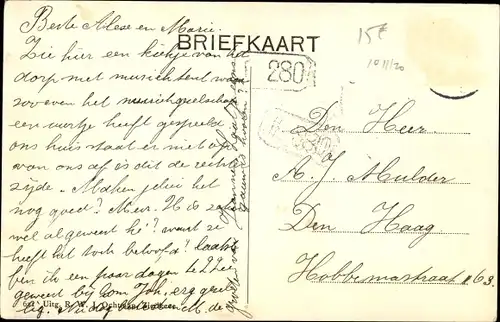 Beste Alese en Marie.
BRIEFKAART
Zie hier een kiekje van het
dorp met muziektent waar
zoo even het muziekgezelschap
een uurtje heeft gespeeld
ons huis staat er niet op
van ons af is dit de rechter
zijde. Maken jelui het
nog goed? Mevr. H is zeker
wel al geweest hè? want ze
heeft het toch beloofd? Laatst
ben ik een paar dagen te
geweest bij oom Joh, erg gezel-
lig.
280
15
Den Heer
A. J. Mulder
Den Haag
Hobbemastraat 163.
Uitg. R. W.